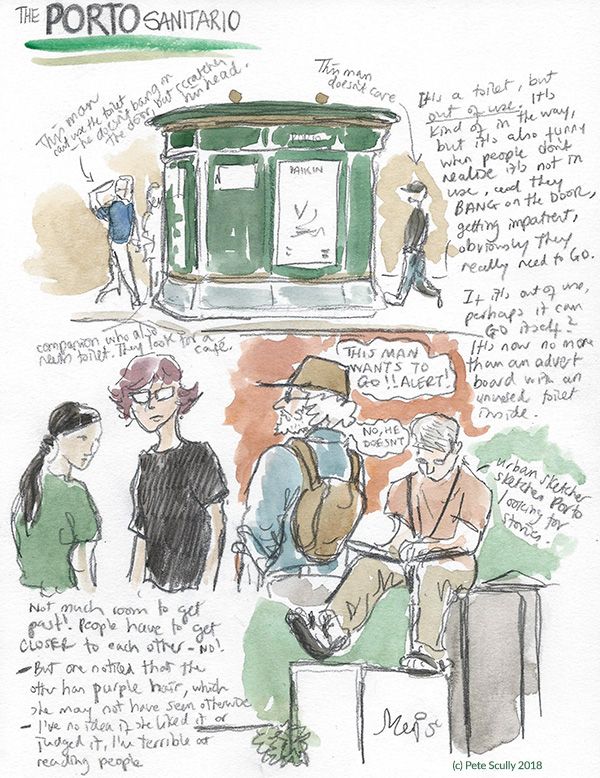 THE PORTO SANITARIO
This man
doesn't care
This man
can't use the toilet
he doesn't bang on
the door, but scratches
his head.
It's a toilet, but
out of use. It's
kind of in the way,
but it's also funny
when people don't
realize it's not in
use, and they
BANG on the DOOR,
getting impatient,
obviously they
really need to GO.
If it's out of use,
perhaps it can
GO itself?
It's now no more
than an advert
board with an
unused toilet
inside.
companion who also
needs toilet. They look for a
café.
THIS MAN
WANTS TO
GO!! ALERT!
NO, HE
DOESN'T
urban sketcher
sketches Porto
looking for
stories.
Not much room to get
past! People have to get
CLOSER to each other - NO!
- But one noticed that the
other has purple hair, which
she may not have seen otherwise
- I've no idea if she liked it or
judged it, I'm terrible at
reading people
(c) Pete Scully 2018